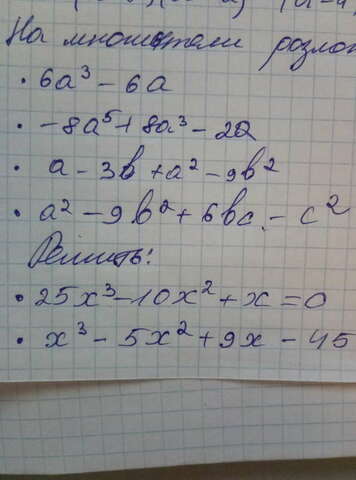 На множители разлож
· 6a³ - 6a
· -8a⁵ + 8a³ - 2a
· a - 3b + a² - 9b²
· a² - 9b² + 6bc - c²
Решить:
· 25x³ - 10x² + x = 0
· x³ - 5x² + 9x - 45